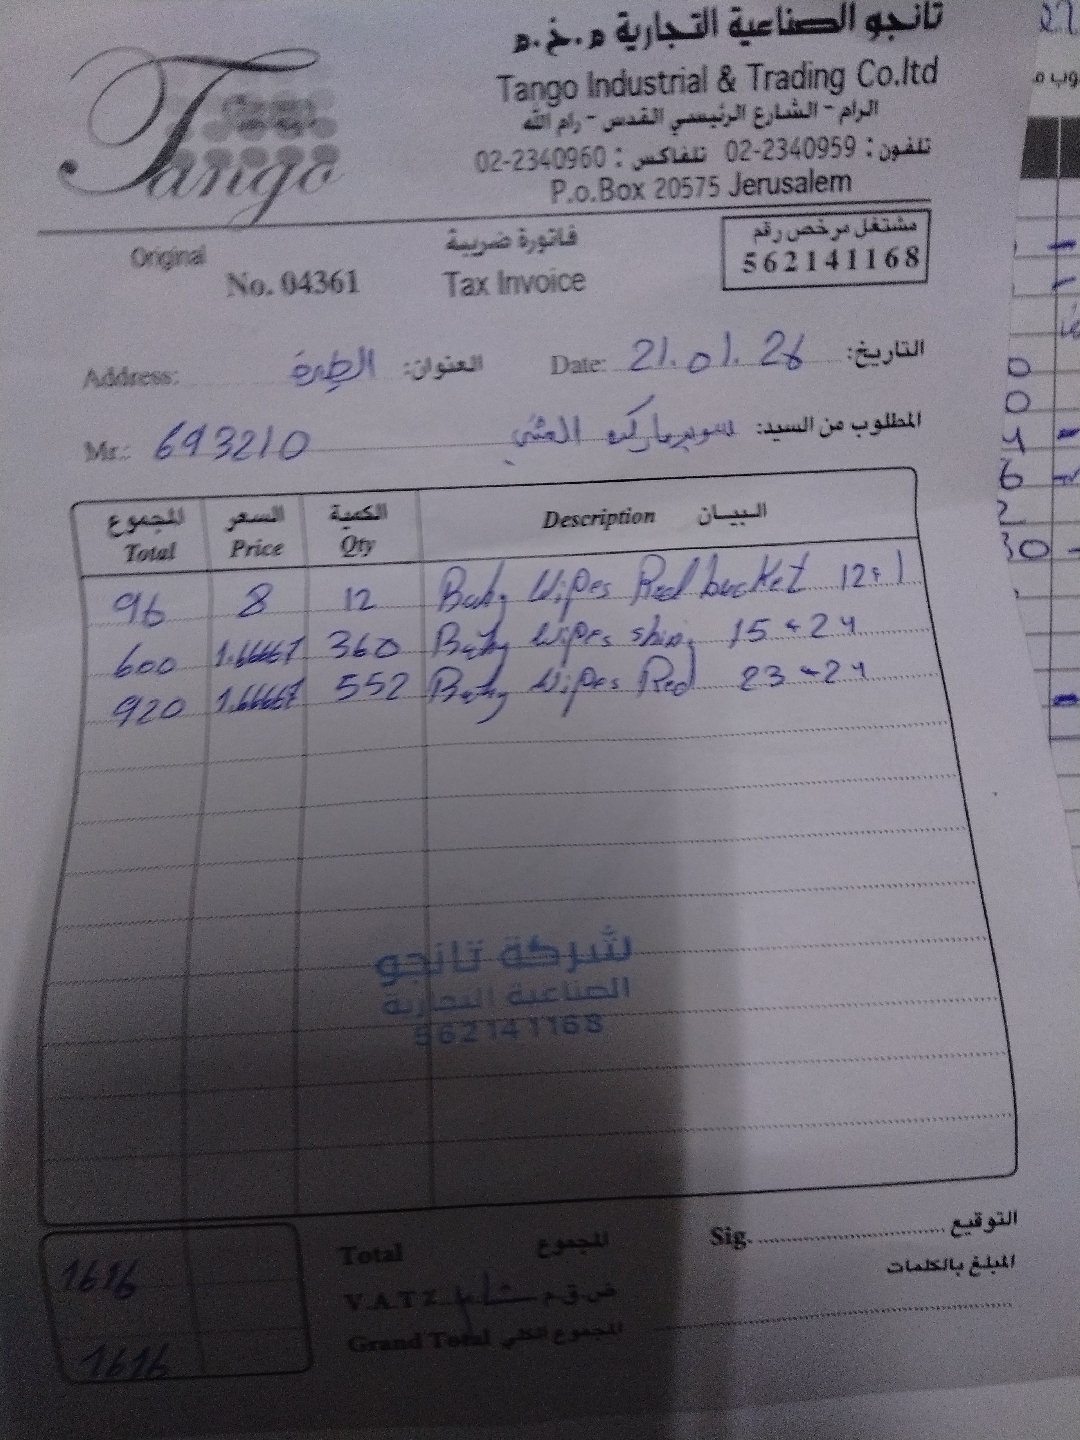 تانجو الصناعية التجارية م.خ.م
Tango
Tango Industrial & Trading Co.ltd
الرام - الشارع الرئيسي القدس - رام الله
تلفون : 02-2340959 تلفاكس : 02-2340960
P.o.Box 20575 Jerusalem
مشتغل مرخص رقم
562141168
فاتورة ضريبية
Original No. 04361 Tax Invoice
التاريخ: Date: 21.01.26 العنوان: الطيرة Address:
المطلوب من السيد: سوبرماركت Mr.: 693210
المجموع السعر الكمية البيان
Total Price Qty Description
96 8 12 Baby Wipes Red bucket 12*1
600 1.66667 360 Baby Wipes 15*24
920 1.66667 552 Baby Wipes Red 23*24
شركة تانجو
الصناعية التجارية
562141168
التوقيع Sig.
المبلغ بالكلمات
1616 Total المجموع
V.A.T % ض.ق.م
1616 Grand Total المجموع الكلي
0
0
4
6
2
30